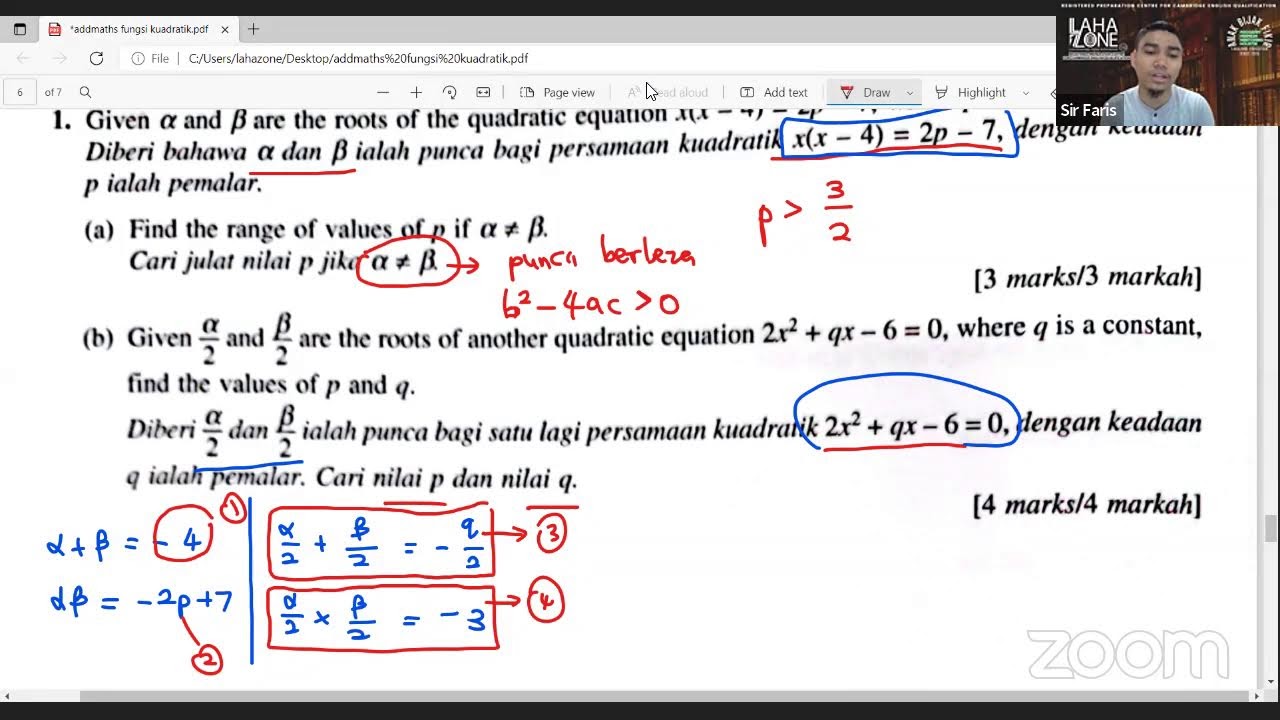 *addmaths fungsi kuadratik.pdf
File
C:/Users/lahazone/Desktop/addmaths%20fungsi%20kuadratik.pdf
6 of 7
Page view
Read aloud
Add text
Draw
Highlight
REGISTERED PREPARATION CENTRE FOR CAMBRIDGE ENGLISH QUALIFICATION
LAHA
ZONE
ANAK BIJAK FIKIR
Sir Faris
1. Given α and β are the roots of the quadratic equation x(x − 4) = 2p − 7,
Diberi bahawa α dan β ialah punca bagi persamaan kuadratik x(x − 4) = 2p − 7, dengan keadaan
p ialah pemalar.
p > 3/2
(a) Find the range of values of p if α ≠ β.
Cari julat nilai p jika α ≠ β.
→ punca berleza
b² − 4ac > 0
[3 marks/3 markah]
(b) Given α/2 and β/2 are the roots of another quadratic equation 2x² + qx − 6 = 0, where q is a constant,
find the values of p and q.
Diberi α/2 dan β/2 ialah punca bagi satu lagi persamaan kuadratik 2x² + qx − 6 = 0, dengan keadaan
q ialah pemalar. Cari nilai p dan nilai q.
[4 marks/4 markah]
α + β = − 4 ①
αβ = −2p + 7
②
α/2 + β/2 = − q/2 → ③
α/2 × β/2 = − 3 → ④
zoom